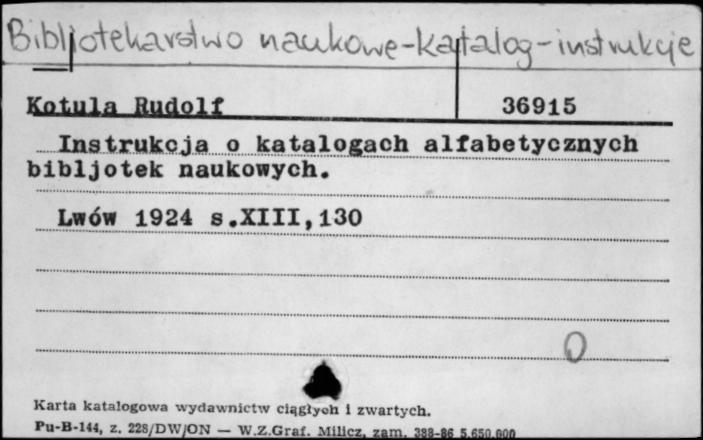 Bibljotekarstwo naukowe-katalog-instrukcje
Kotula Rudolf 36915
Instrukcja o katalogach alfabetycznych
bibljotek naukowych.
Lwów 1924 s.XIII,130
O
Karta katalogowa wydawnictw ciągłych i zwartych.
Pu-B-144, z. 228/DW/ON — W.Z.Graf. Milicz, zam. 388-86 5.650.000